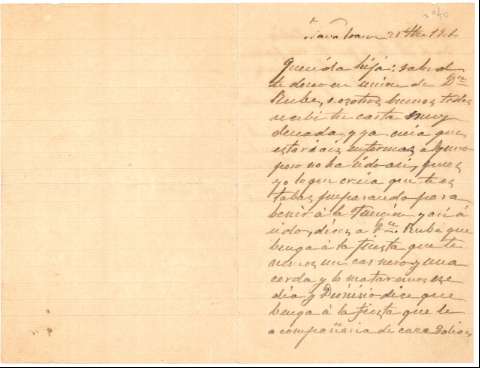 Querida hija: salud
te deseo en union de Dn
Rube, nosotros buenos todos
recibi tu carta muy
deseada, y ya creia que
estariais enfermos alguno
pero no ha sido asi, pues
yo lo que creia que te es
tabas preparando para
benir á la funcion y asi á
sido, dices a Dn. Rube que
benga á la fiesta que te
nemos un carnero y una
cerda y lo mataremos ese
dia y Dionisio dice que
benga á la fiesta que le
acompañaria de caza